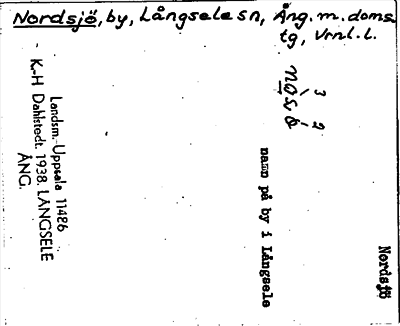 Nordsjö, by, Långsele sn, Ång. m. doms.
tg, Vrnl. l.
Nordsjö
namn på by i Långsele
Landsm. Uppsala 11486
K.-H Dahlstedt. 1938. LÅNGSELE
ÅNG.